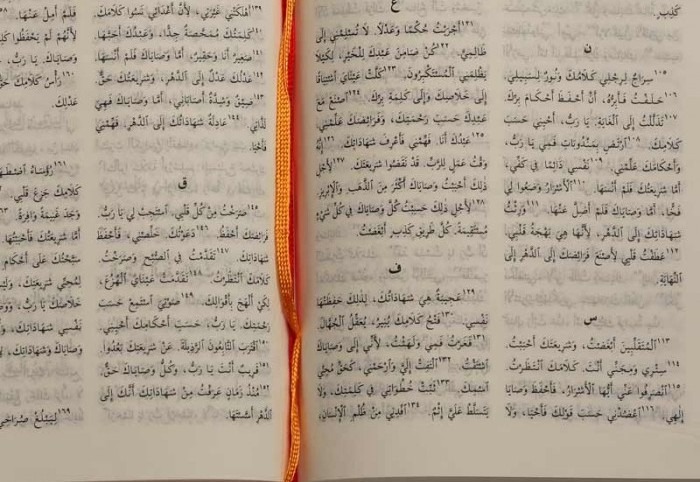 كَذِبٍ.
ن
١٠٥سِرَاجٌ لِرِجْلِي كَلَامُكَ وَنُورٌ لِسَبِيلِي.
١٠٦حَلَفْتُ فَأَبِرُّهُ، أَنْ أَحْفَظَ أَحْكَامَ بِرِّكَ.
١٠٧تَذَلَّلْتُ إِلَى الْغَايَةِ. يَا رَبُّ، أَحْيِنِي حَسَبَ
كَلَامِكَ. ١٠٨ارْتَضِ بِمَنْدُوبَاتِ فَمِي يَا رَبُّ،
وَأَحْكَامَكَ عَلِّمْنِي. ١٠٩نَفْسِي دَائِمًا فِي كَفِّي،
أَمَّا شَرِيعَتُكَ فَلَمْ أَنْسَهَا. ١١٠الْأَشْرَارُ وَضَعُوا لِي
فَخًّا، أَمَّا وَصَايَاكَ فَلَمْ أَضِلَّ عَنْهَا. ١١١وَرِثْتُ
شَهَادَاتِكَ إِلَى الدَّهْرِ، لِأَنَّهَا هِيَ بَهْجَةُ قَلْبِي.
١١٢عَطَفْتُ قَلْبِي لِأَصْنَعَ فَرَائِضَكَ إِلَى الدَّهْرِ إِلَى
النِّهَايَةِ.
س
١١٣الْمُتَقَلِّبِينَ أَبْغَضْتُ، وَشَرِيعَتَكَ أَحْبَبْتُ.
١١٤سِتْرِي وَمِجَنِّي أَنْتَ. كَلَامَكَ انْتَظَرْتُ.
١١٥انْصَرِفُوا عَنِّي أَيُّهَا الْأَشْرَارُ، فَأَحْفَظَ وَصَايَا
إِلَهِي. ١١٦اعْضُدْنِي حَسَبَ قَوْلِكَ فَأَحْيَا، وَلَا
ع
١٢١أَجْرَيْتُ حُكْمًا وَعَدْلًا. لَا تُسْلِمْنِي إِلَى
ظَالِمِيَّ. ١٢٢كُنْ ضَامِنَ عَبْدِكَ لِلْخَيْرِ، لِكَيْلَا
يَظْلِمَنِي الْمُسْتَكْبِرُونَ. ١٢٣كَلَّتْ عَيْنَايَ اشْتِيَاقًا
إِلَى خَلَاصِكَ وَإِلَى كَلِمَةِ بِرِّكَ. ١٢٤اصْنَعْ مَعَ
عَبْدِكَ حَسَبَ رَحْمَتِكَ، وَفَرَائِضَكَ عَلِّمْنِي.
١٢٥عَبْدُكَ أَنَا. فَهِّمْنِي فَأَعْرِفَ شَهَادَاتِكَ. ١٢٦إِنَّهُ
وَقْتُ عَمَلٍ لِلرَّبِّ. قَدْ نَقَضُوا شَرِيعَتَكَ. ١٢٧لِأَجْلِ
ذَلِكَ أَحْبَبْتُ وَصَايَاكَ أَكْثَرَ مِنَ الذَّهَبِ وَالْإِبْرِيزِ.
١٢٨لِأَجْلِ ذَلِكَ حَسِبْتُ كُلَّ وَصَايَاكَ فِي كُلِّ شَيْءٍ
مُسْتَقِيمَةً. كُلَّ طَرِيقِ كَذِبٍ أَبْغَضْتُ.
ف
١٢٩عَجِيبَةٌ هِيَ شَهَادَاتُكَ، لِذَلِكَ حَفِظَتْهَا
نَفْسِي. ١٣٠فَتْحُ كَلَامِكَ يُنِيرُ، يُعَقِّلُ الْجُهَّالَ.
١٣١فَغَرْتُ فَمِي وَلَهَثْتُ، لِأَنِّي إِلَى وَصَايَاكَ
اشْتَقْتُ. ١٣٢الْتَفِتْ إِلَيَّ وَارْحَمْنِي، كَحَقِّ مُحِبِّي
اسْمِكَ. ١٣٣ثَبِّتْ خُطُوَاتِي فِي كَلِمَتِكَ، وَلَا
يَتَسَلَّطْ عَلَيَّ إِثْمٌ. ١٣٤افْدِنِي مِنْ ظُلْمِ الْإِنْسَانِ،
١٣٩أَهْلَكَتْنِي غَيْرَتِي، لِأَنَّ أَعْدَائِي نَسُوا كَلَامَكَ.
١٤٠كَلِمَتُكَ مُمَحَّصَةٌ جِدًّا، وَعَبْدُكَ أَحَبَّهَا.
١٤١صَغِيرٌ أَنَا وَحَقِيرٌ، أَمَّا وَصَايَاكَ فَلَمْ أَنْسَهَا.
١٤٢عَدْلُكَ عَدْلٌ إِلَى الدَّهْرِ، وَشَرِيعَتُكَ حَقٌّ.
١٤٣ضِيْقٌ وَشِدَّةٌ أَصَابَانِي، أَمَّا وَصَايَاكَ فَهِيَ
لَذَّاتِي. ١٤٤عَادِلَةٌ شَهَادَاتُكَ إِلَى الدَّهْرِ. فَهِّمْنِي
فَأَحْيَا.
ق
١٤٥صَرَخْتُ مِنْ كُلِّ قَلْبِي. اسْتَجِبْ لِي يَا رَبُّ.
فَرَائِضَكَ أَحْفَظُ. ١٤٦دَعَوْتُكَ. خَلِّصْنِي، فَأَحْفَظَ
شَهَادَاتِكَ. ١٤٧تَقَدَّمْتُ فِي الصُّبْحِ وَصَرَخْتُ.
كَلَامَكَ انْتَظَرْتُ. ١٤٨تَقَدَّمَتْ عَيْنَايَ الْهُزُعَ،
لِكَيْ أَلْهَجَ بِأَقْوَالِكَ. ١٤٩صَوْتِيَ اسْتَمِعْ حَسَبَ
رَحْمَتِكَ. يَا رَبُّ، حَسَبَ أَحْكَامِكَ أَحْيِنِي.
١٥٠اقْتَرَبَ التَّابِعُونَ الرَّذِيلَةَ. عَنْ شَرِيعَتِكَ بَعُدُوا.
١٥١قَرِيبٌ أَنْتَ يَا رَبُّ، وَكُلُّ وَصَايَاكَ حَقٌّ.
١٥٢مُنْذُ زَمَانٍ عَرَفْتُ مِنْ شَهَادَاتِكَ أَنَّكَ إِلَى
الدَّهْرِ أَسَّسْتَهَا.
فَلَمْ أَمِلْ عَنْهَا. ١٥٨
لِأَنَّهُمْ لَمْ يَحْفَظُوا كَلِمَتَكَ
وَصَايَاكَ. يَا رَبُّ،
١٦٠رَأْسُ كَلَامِكَ حَقٌّ
عَدْلِكَ.
١٦١رُؤَسَاءُ اضْطَهَدُ
كَلَامِكَ جَزِعَ قَلْبِي.
وَجَدَ غَنِيمَةً وَافِرَةً.
أَمَّا شَرِيعَتُكَ فَأَحْبَبْتُهَا.
سَبَّحْتُكَ عَلَى أَحْكَامِ
لِمُحِبِّي شَرِيعَتِكَ، وَلَيْسَ
خَلَاصَكَ يَا رَبُّ، وَوَصَايَا
نَفْسِي شَهَادَاتِكَ،
وَصَايَاكَ وَشَهَادَاتِكَ،
١٦٩لِيَبْلُغْ صُرَاخِي